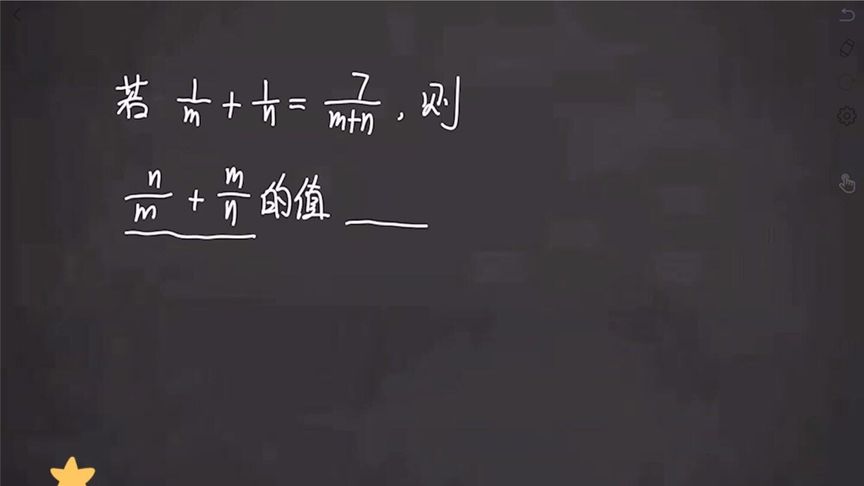 若 1/m + 1/n = 7/(m+n) , 则
n/m + m/n 的值 ____